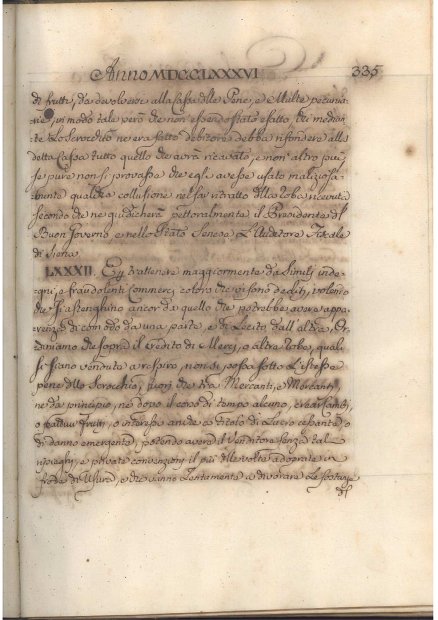 Anno MDCCLXXXVI 335
di frutti, da devolversi alla Cassa delle Pene, e Multe pecunia-
rie, in modo tale però che non essendo stato esatto, chi median-
te lo Scrocchio ne era fatto debitore debba rifondere alla
detta Cassa tutto quello che avrà ricavato, e non altro più,
se pure non si provasse che egli avesse usato maliziosa-
mente qualche collusione nel far ritratto della roba ricevuta
secondo che ne giudicherà pettoralmente il Presidente del
Buon Governo, e nello Stato Senese l'Auditore Fiscale
di Siena.
LXXXII. E per trattenere maggiormente da simili inde-
gni, e fraudolenti commerci coloro che vi sono dediti, volendo
che si astenghino ancor da quello che potrebbe avere appa-
renza di comodo da una parte, e di lecito dall'altra, Or-
diniamo che sopra il credito di Merci, o altre robe, qual
si siano vendute a respiro, non si possa sotto l'istesse
pene dello Scrocchio, fuori che tra Mercanti, e Mercanti,
nè da principio, nè dopo il corso di tempo alcuno, crear Cambi,
o frutti, o interesse anche a titolo di Lucro cessante, o
di danno emergente, potendo aversi il Venditore senza tal
e private convenzioni il più delle volte adoprate in
frode di Usure, e che vanno lentamente a divorare le sostanze